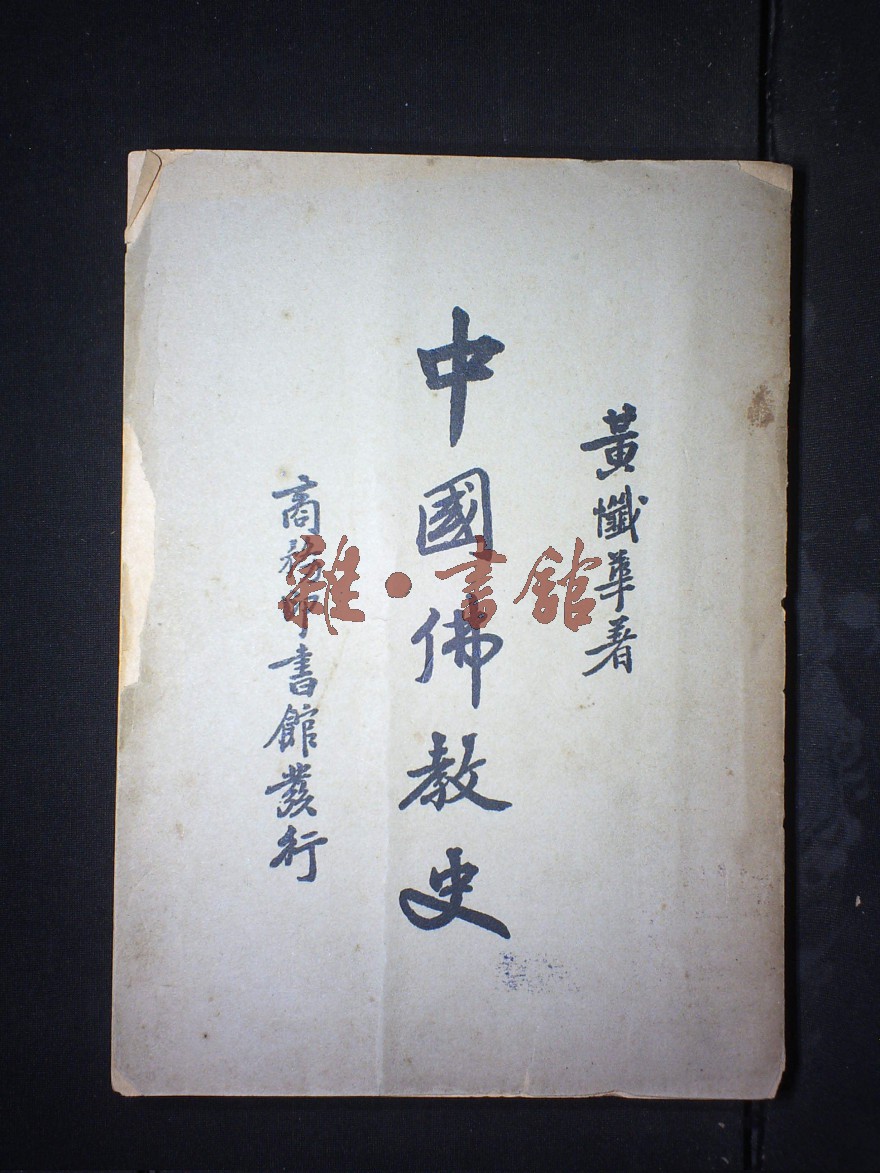 黃懺華著
中國佛教史
商務印書館發行
雜·書館